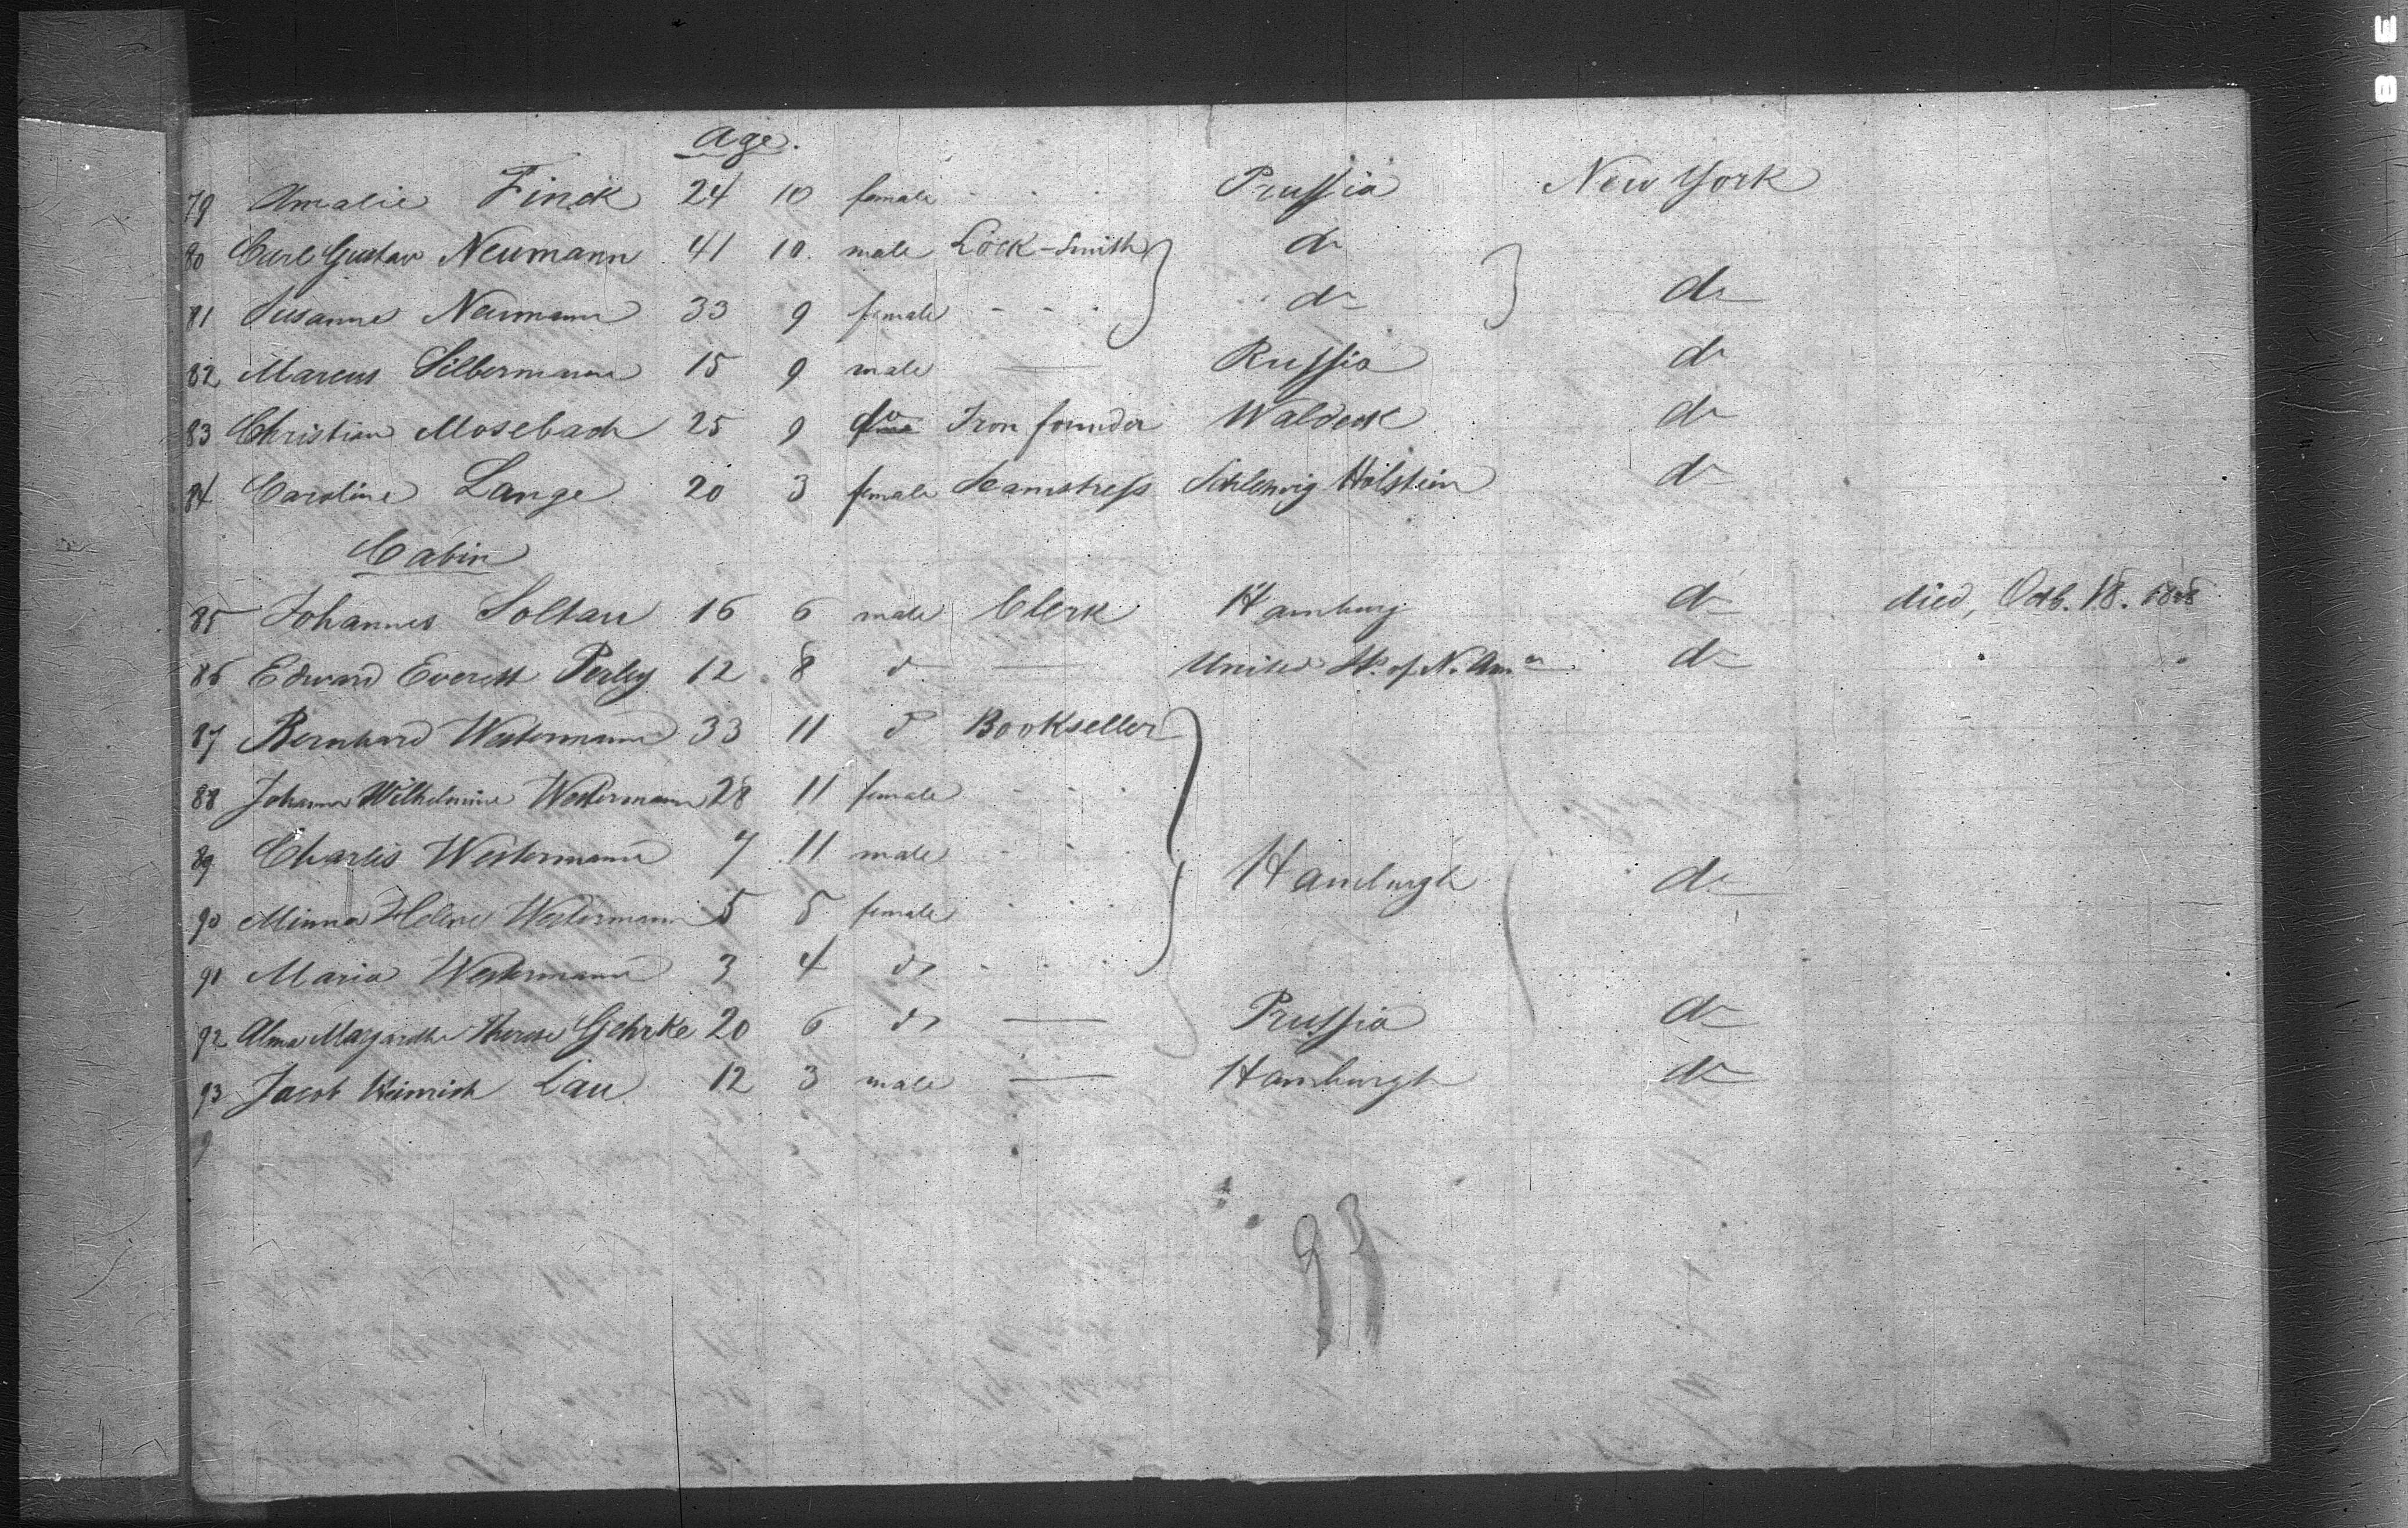 Age.
79 Amalie Finck 24 10 female - - - Prussia New York
80 Carl Gustav Neumann 41 10. male Lock-Smith do
81 Susanne Neumann 33 9 female - - - do do
82 Marcus Silbermann 15 9 male — Russia do
83 Christian Mosebach 25 9 do Iron founder Waldeck do
84 Caroline Lange 20 3 female Seamstress Schleswig Holstein do
Cabin
85 Johannes Soltau 16 6 male Clerk Hamburg do died, Octb. 18. 1858
86 Edward Everett Perley 12 8 do — United St. of N. Am. do
87 Bernhard Westermann 33 11 do Bookseller
88 Johanna Wilhelmine Westermann 28 11 female - - -
89 Charles Westermann 7 11 male - - -
Hamburgh do
90 Minna Helene Westermann 5 5 female - - -
91 Maria Westermann 3 4 do - - -
92 Alma Margarethe Therese Gehrke 20 6 do — Prussia do
93 Jacob Heinrich Lau 12 3 male — Hamburgh do
9
93